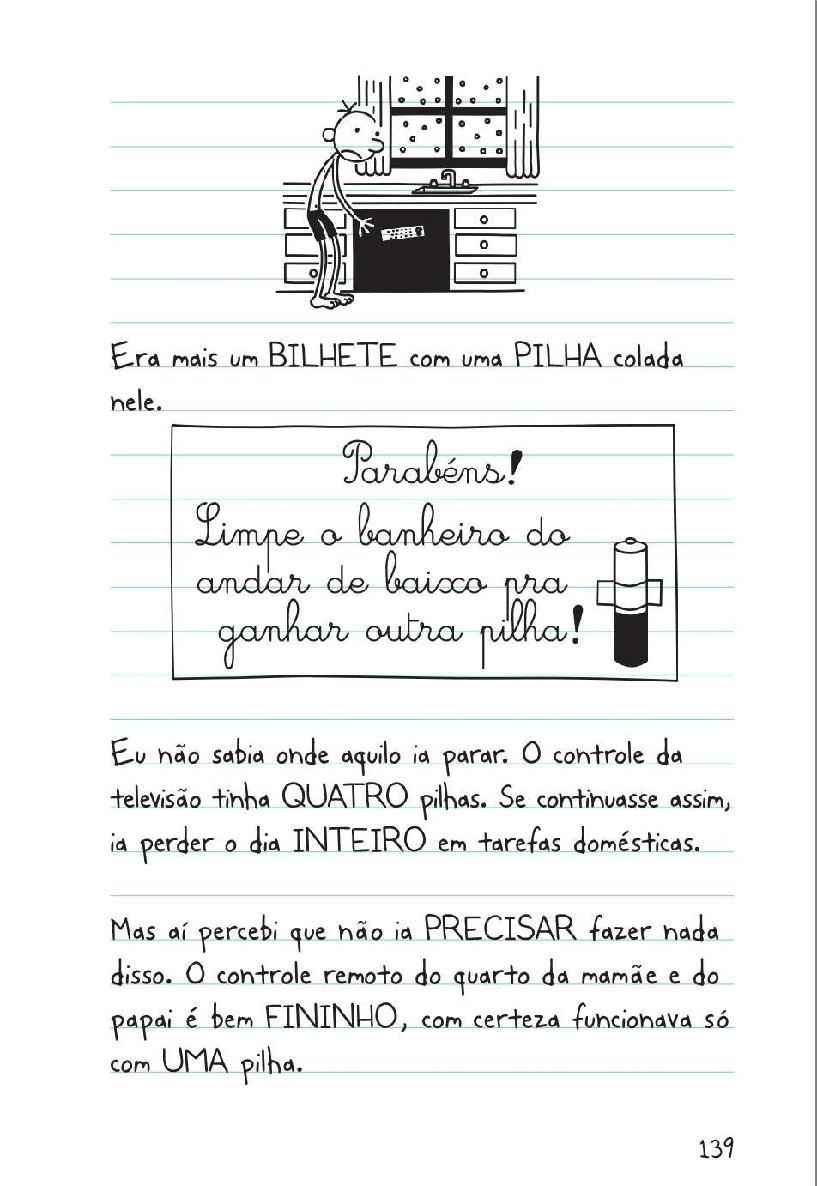 Era mais um BILHETE com uma PILHA colada
nele.
Parabéns!
Limpe o banheiro do
andar de baixo pra
ganhar outra pilha!
Eu não sabia onde aquilo ia parar. O controle da
televisão tinha QUATRO pilhas. Se continuasse assim,
ia perder o dia INTEIRO em tarefas domésticas.
Mas aí percebi que não ia PRECISAR fazer nada
disso. O controle remoto do quarto da mamãe e do
papai é bem FININHO, com certeza funcionava só
com UMA pilha.
139